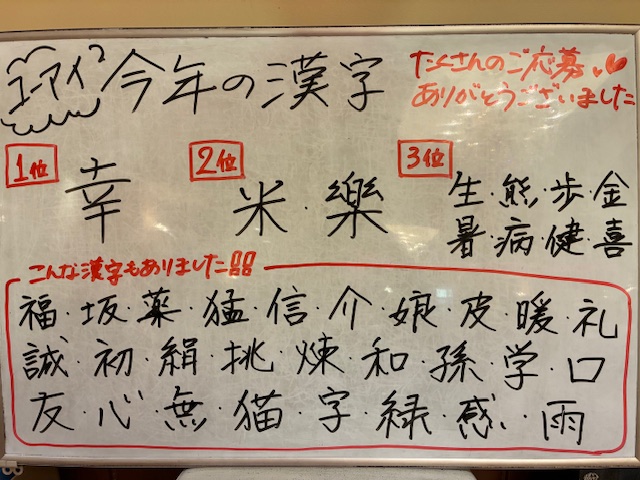 ユーアイ 今年の漢字
たくさんのご応募
ありがとうございました
1位 幸
2位 米・樂
3位 生・熊・歩・金
暑・病・健・喜
こんな漢字もありました!!
福・坂・薬・猛・信・介・娘・皮・暖・礼
誠・初・絹・挑・煉・和・孫・学・口
友・心・無・猫・字・緑・感・雨